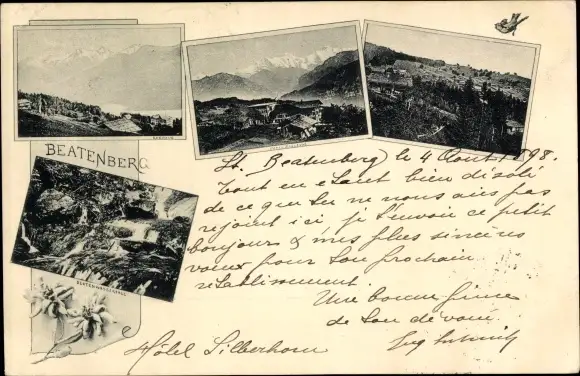 BEATENBERG
St. Beatenberg, le 4 Aout 1898.
Tout en étant bien désolé
de ce que tu ne nous aies pas
rejoint ici je t'envoie ce petit
bonjours & mes plus sincères
voeux pour ton prochain
rétablissement.
Une bonne
de ton dévoué.
Hôtel Silberhorn